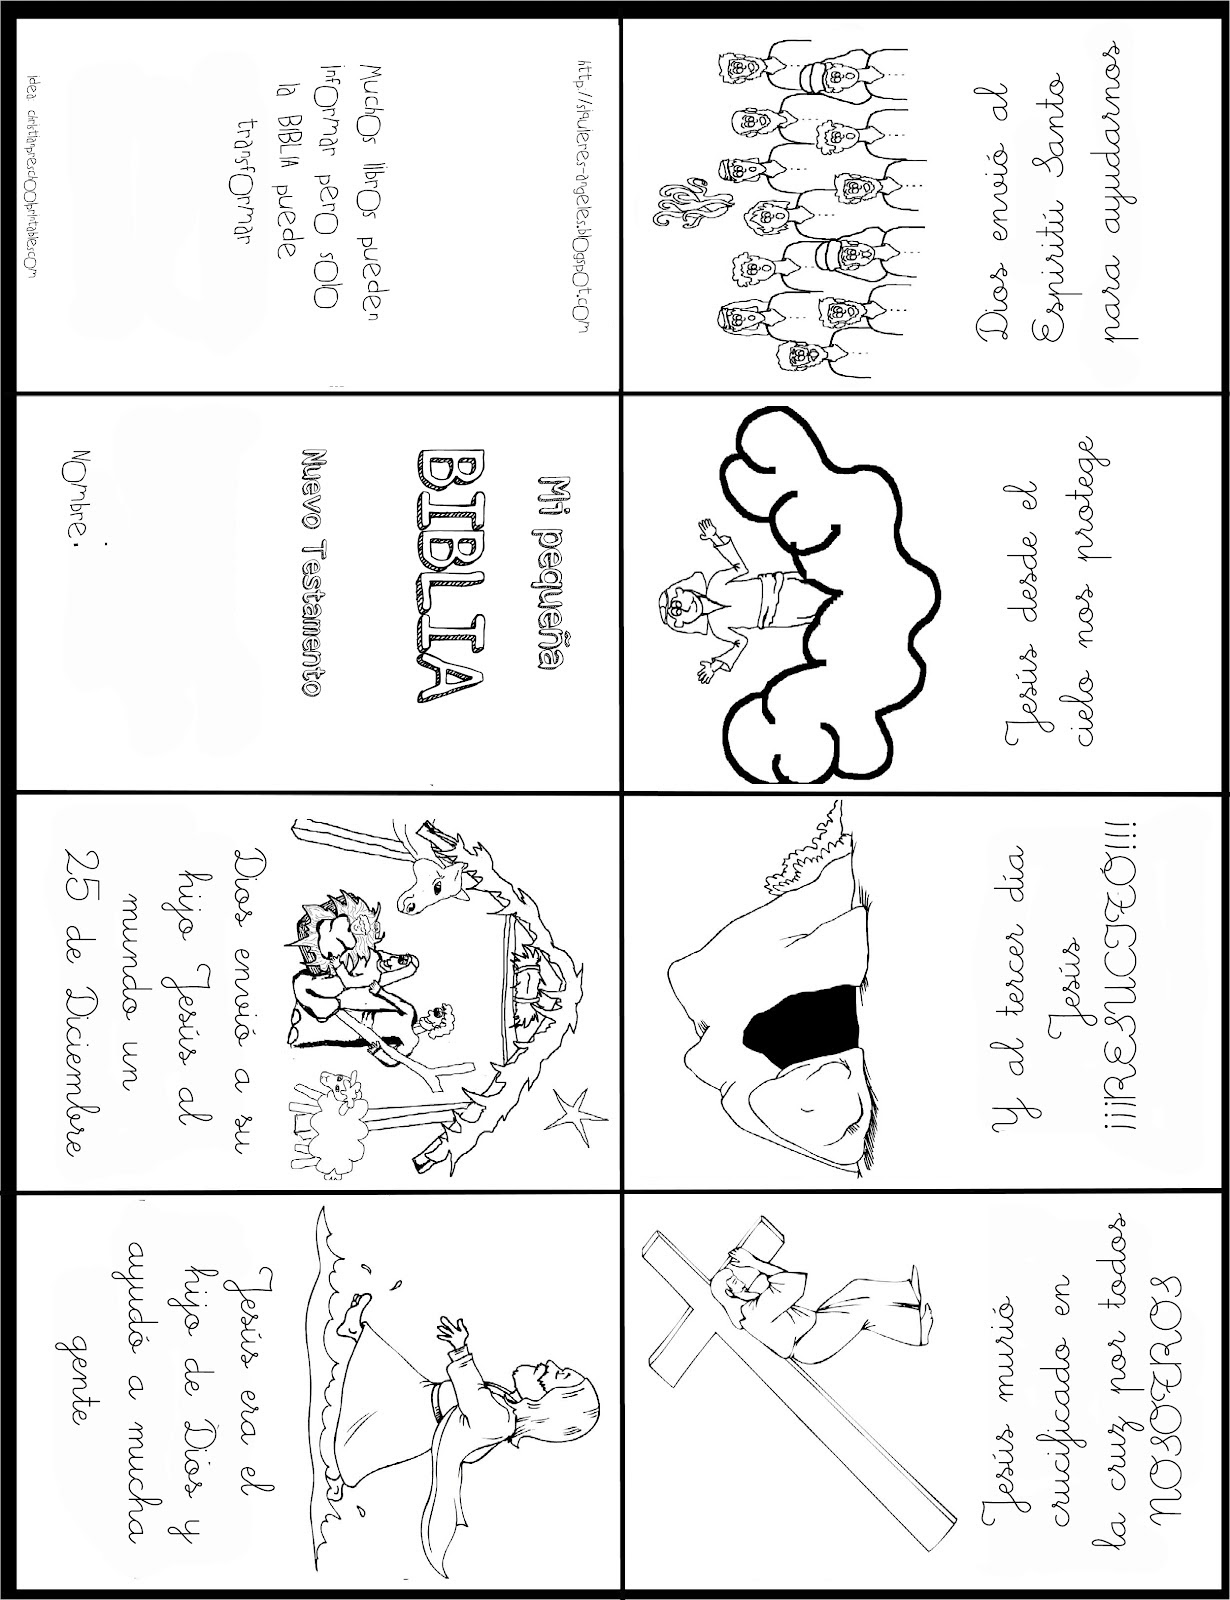 http://siquieres-angeles.blogspot.com
Muchos libros pueden
informar pero solo
la BIBLIA puede
transformar
Idea christianpreschoolprintables.com
Mi pequeña
BIBLIA
Nuevo Testamento
Nombre:
Dios envió a su
hijo Jesús al
mundo un
25 de Diciembre
Jesús era el
hijo de Dios y
ayudó a mucha
gente
Jesús murió
crucificado en
la cruz por todos
NOSOTROS
Y al tercer día
Jesús
¡¡¡RESUCITÓ!!!
Jesús desde el
cielo nos protege
Dios envió al
Espiritú Santo
para ayudarnos